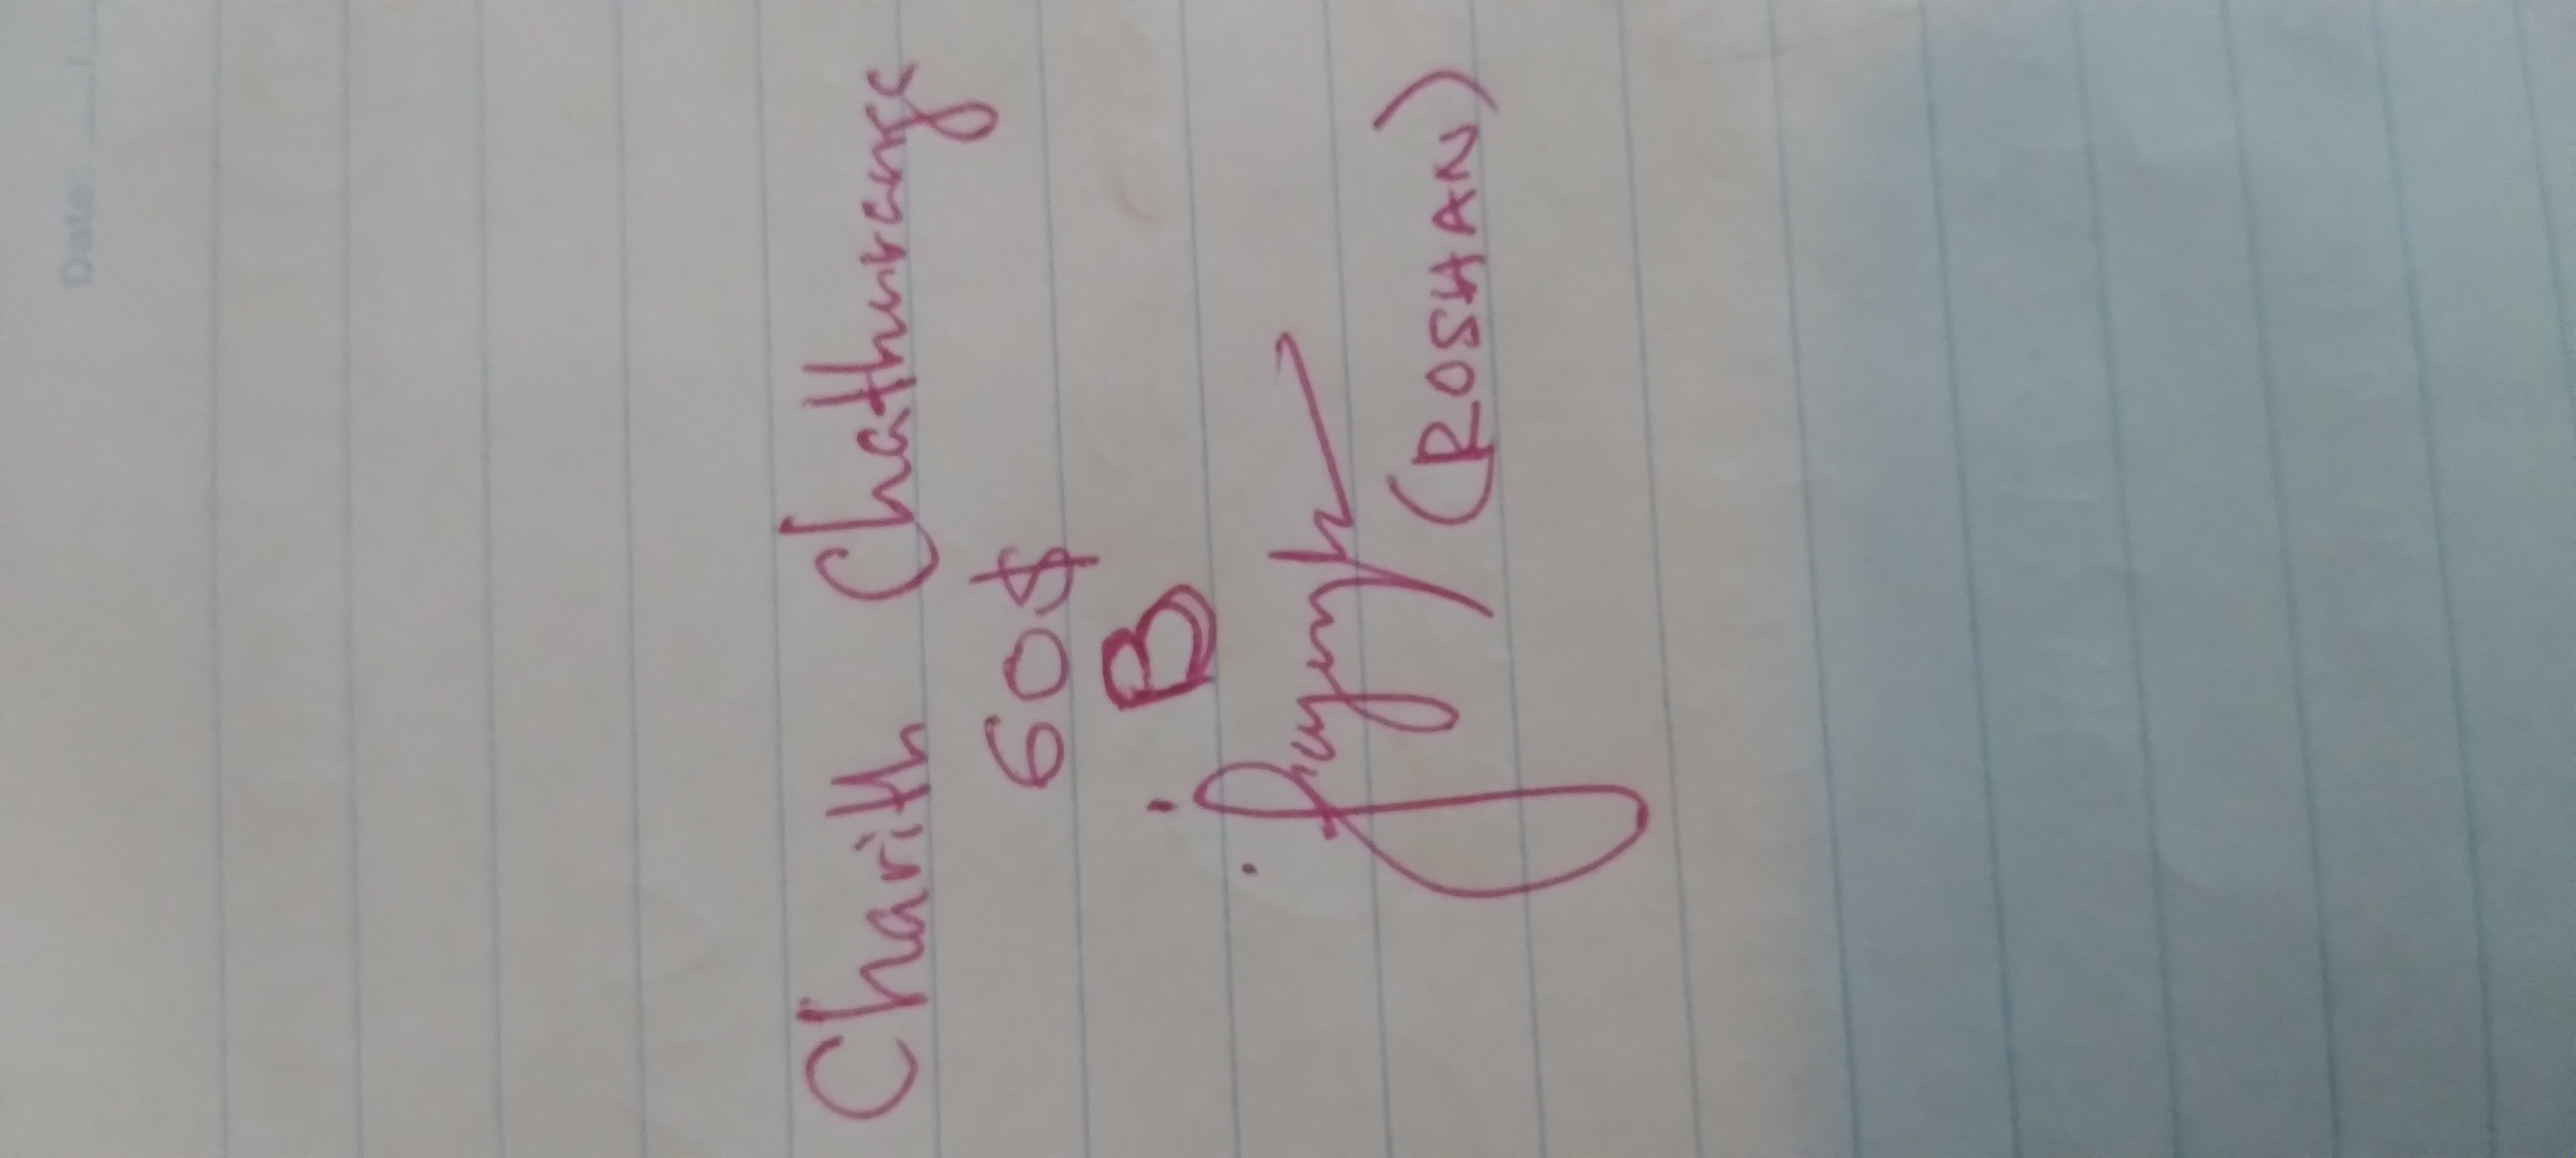 Date: __/__
Charith Chathuranga
60$
B
(ROSHAN)